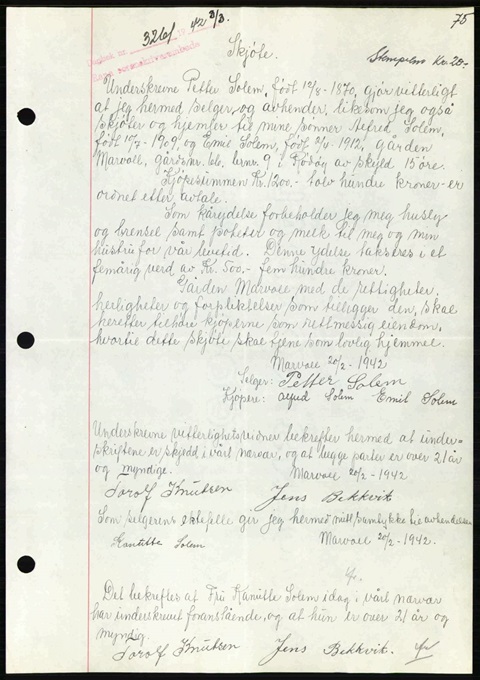 75
326/ 42 3/3.
Skjöte.
Stemples Kr. 20.-
Underskrevne Petter Solem, födt 12/8-1870, gjör vitterligt
at jeg hermed selger og avhender, likesom jeg også
skjöter og hjemler til mine sönner Alfred Solem,
födt 10/7-1909, og Emil Solem, födt 2/4-1912, gården
Marvoll, gårdsnr. 66, brnr. 9 i Rödöy av skyld 15 öre.
Kjöpesummen Kr. 1200.- tolv hundre kroner - er
ordnet efter avtale.
Som kårytelse forbeholder jeg meg husly
og brensel samt poteter og melk til meg og min
hustru for vår levetid. Denne ydelse takseres i et
femårig verd av Kr. 500.- fem hundre kroner.
Gården Marvoll med de rettigheter,
herligheter og forpliktelser som tilligger den, skal
herefter tilhöre kjöperne som rettmessig eiendom,
hvortil dette skjöte skal tjene som lovlig hjemmel.
Marvoll 20/2-1942
Selger: Petter Solem
Kjöpere: Alfred Solem Emil Solem
Underskrevne vitterlighetsvidner bekrefter hermed at under-
skriftene er skjedd i vårt nærvær, og at begge parter er over 21 år
og myndige. Marvoll 20/2-1942
Torolf Knutsen Jens Bekkvik
Som selgerens ektefelle gir jeg hermed mitt samtykke til avhendelsen
Kanutte Solem Marvoll 20/2-1942.
Det bekreftes at Fru Kanutte Solem idag i vårt nærvær
har underskrevet foranstående, og at hun er over 21 år og
myndig.
Torolf Knutsen Jens Bekkvik.